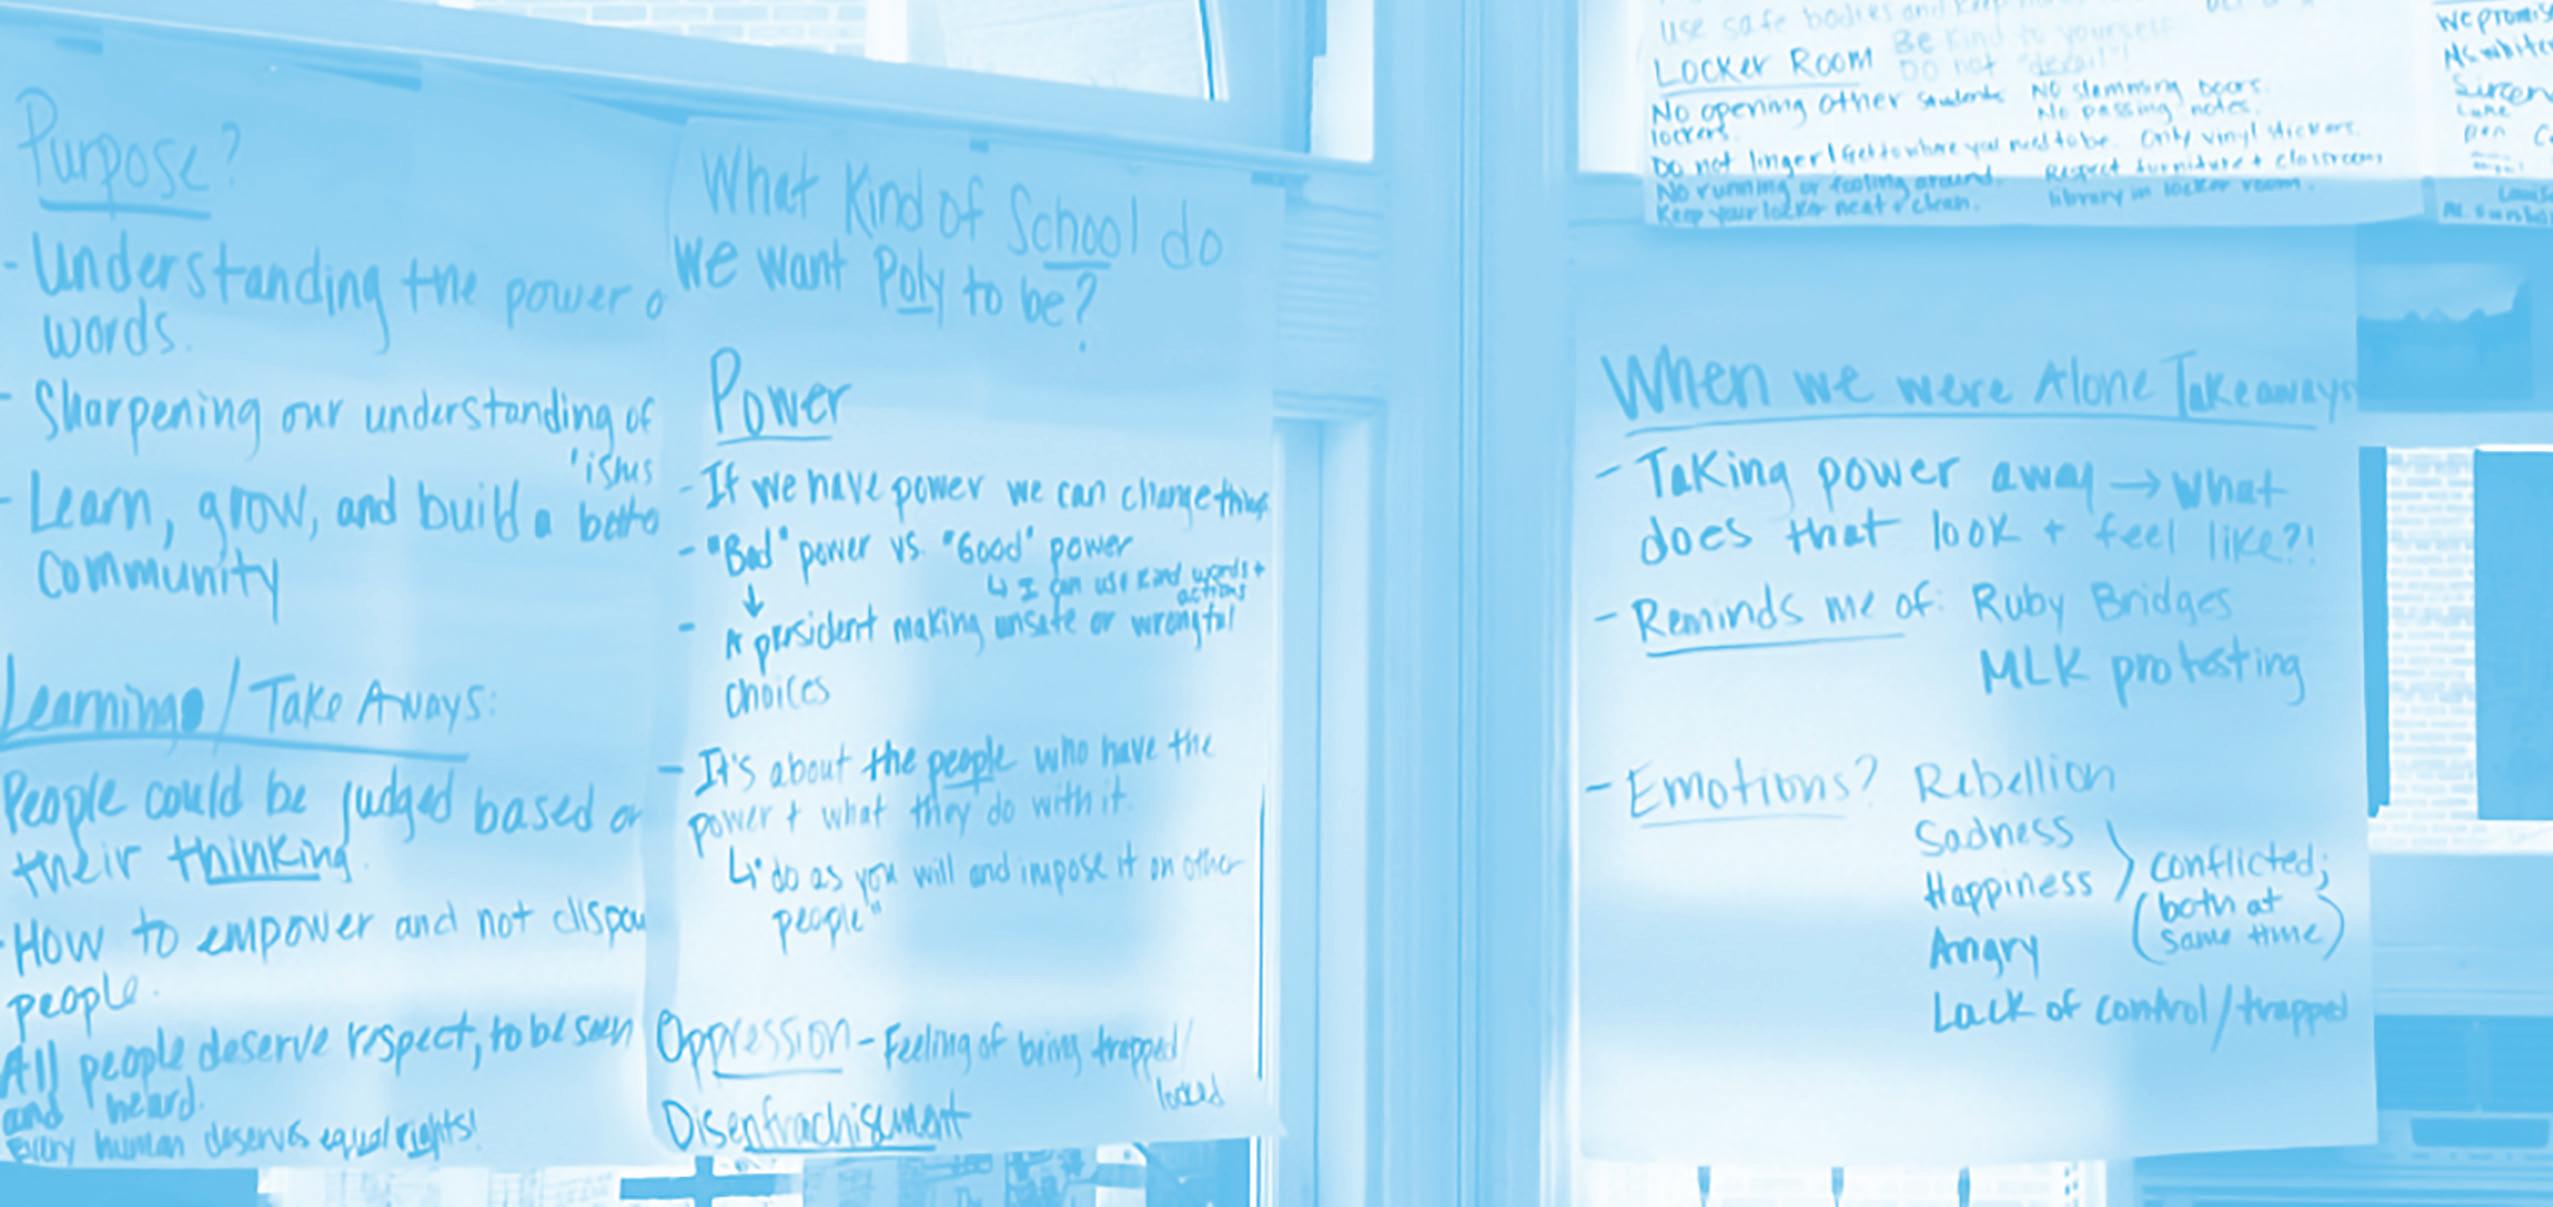 Purpose?
- Understanding the power o
words.
- Sharpening our understanding of
'isms
- Learn, grow, and build a bette
community
Learnings / Take Aways:
People could be judged based on
their thinking.
- How to empower and not dispow
people.
All people deserve respect, to be seen
and heard.
Every human deserves equal rights!
What Kind of School do
we want Poly to be?
Power
- If we have power we can change things
- "Bad" power vs. "Good" power
↳ I can use kind words +
actions
↓
- A president making unsafe or wrongful
choices
- It's about the people who have the
power + what they do with it.
↳ "do as you will and impose it on other
people"
Oppression - Feeling of being trapped/
locked
Disenfrachisement
use safe bodies and keep
Locker Room Be kind to yourself
Do not "derail"!
No opening other students
lockers.
Do not linger! Get to where you need to be.
No running or fooling around.
Keep your locker neat + clean.
No slamming doors.
No passing notes.
Only vinyl stickers.
Respect furniture + classroom
library in locker room.
We promise
When we were Alone Takeaways
- Taking power away → what
does that look + feel like?!
- Reminds me of: Ruby Bridges
MLK protesting
- Emotions? Rebellion
Sadness
Happiness } conflicted;
(both at
same time)
Angry
Lack of control / trapped